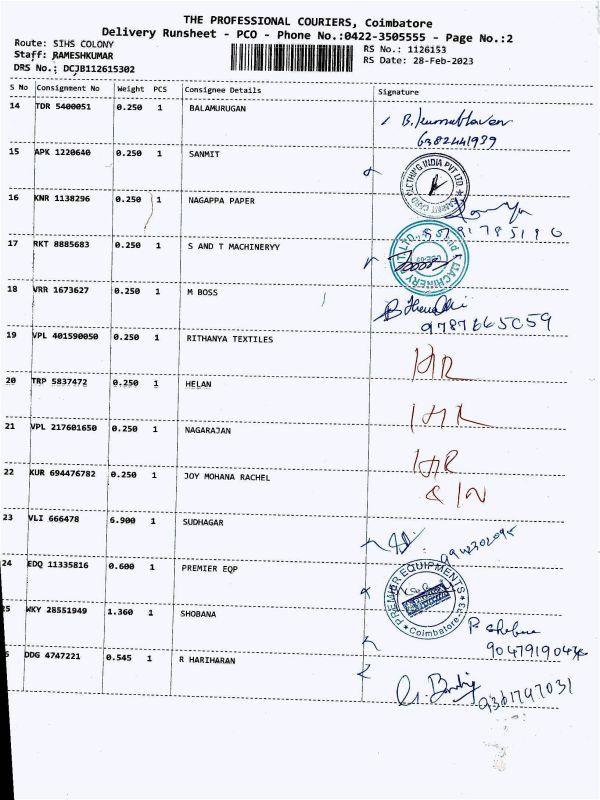 THE PROFESSIONAL COURIERS, Coimbatore
Delivery Runsheet - PCO - Phone No.:0422-3505555 - Page No.:2
Route: SIHS COLONY
RS No.: 1126153
Staff: RAMESHKUMAR
RS Date: 28-Feb-2023
DRS No.: DCJB112615302
S No Consignment No Weight PCS Consignee Details Signature
14 TDR 5400051 0.250 1 BALAMURUGAN
6382441939
15 APK 1220640 0.250 1 SANMIT
16 KNR 1138296 0.250 1 NAGAPPA PAPER
17 RKT 8885683 0.250 1 S AND T MACHINERYY
18 VRR 1673627 0.250 1 M BOSS
9787665059
19 VPL 401590050 0.250 1 RITHANYA TEXTILES
20 TRP 5837472 0.250 1 HELAN
21 VPL 217601650 0.250 1 NAGARAJAN
22 KUR 694476782 0.250 1 JOY MOHANA RACHEL
23 VLI 666478 6.900 1 SUDHAGAR
24 EDQ 11335816 0.600 1 PREMIER EQP
PREMIER EQUIPMENTS
Coimbatore-13
WKY 28551949 1.360 1 SHOBANA
DDG 4747221 0.545 1 R HARIHARAN
9361747031